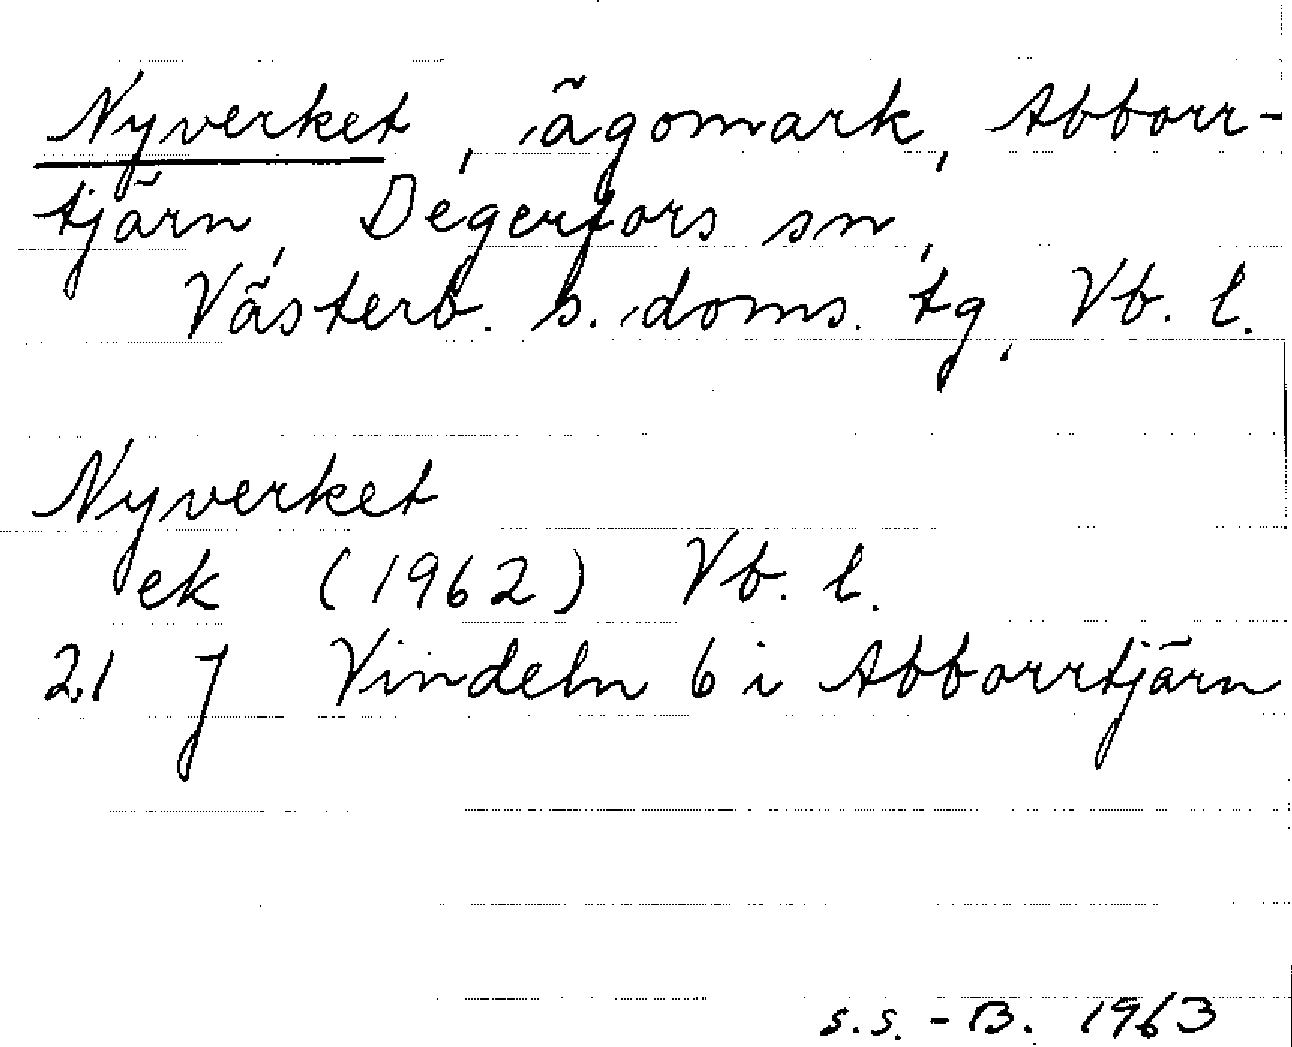 Nyverket, ägomark, Abborr-
tjärn, Degerfors sn,
Västerb. s. doms. tg, Vb. l.
Nyverket
ek (1962) Vb. l.
21 J Vindeln 6 i Abborrtjärn
s.s. - B. 1963